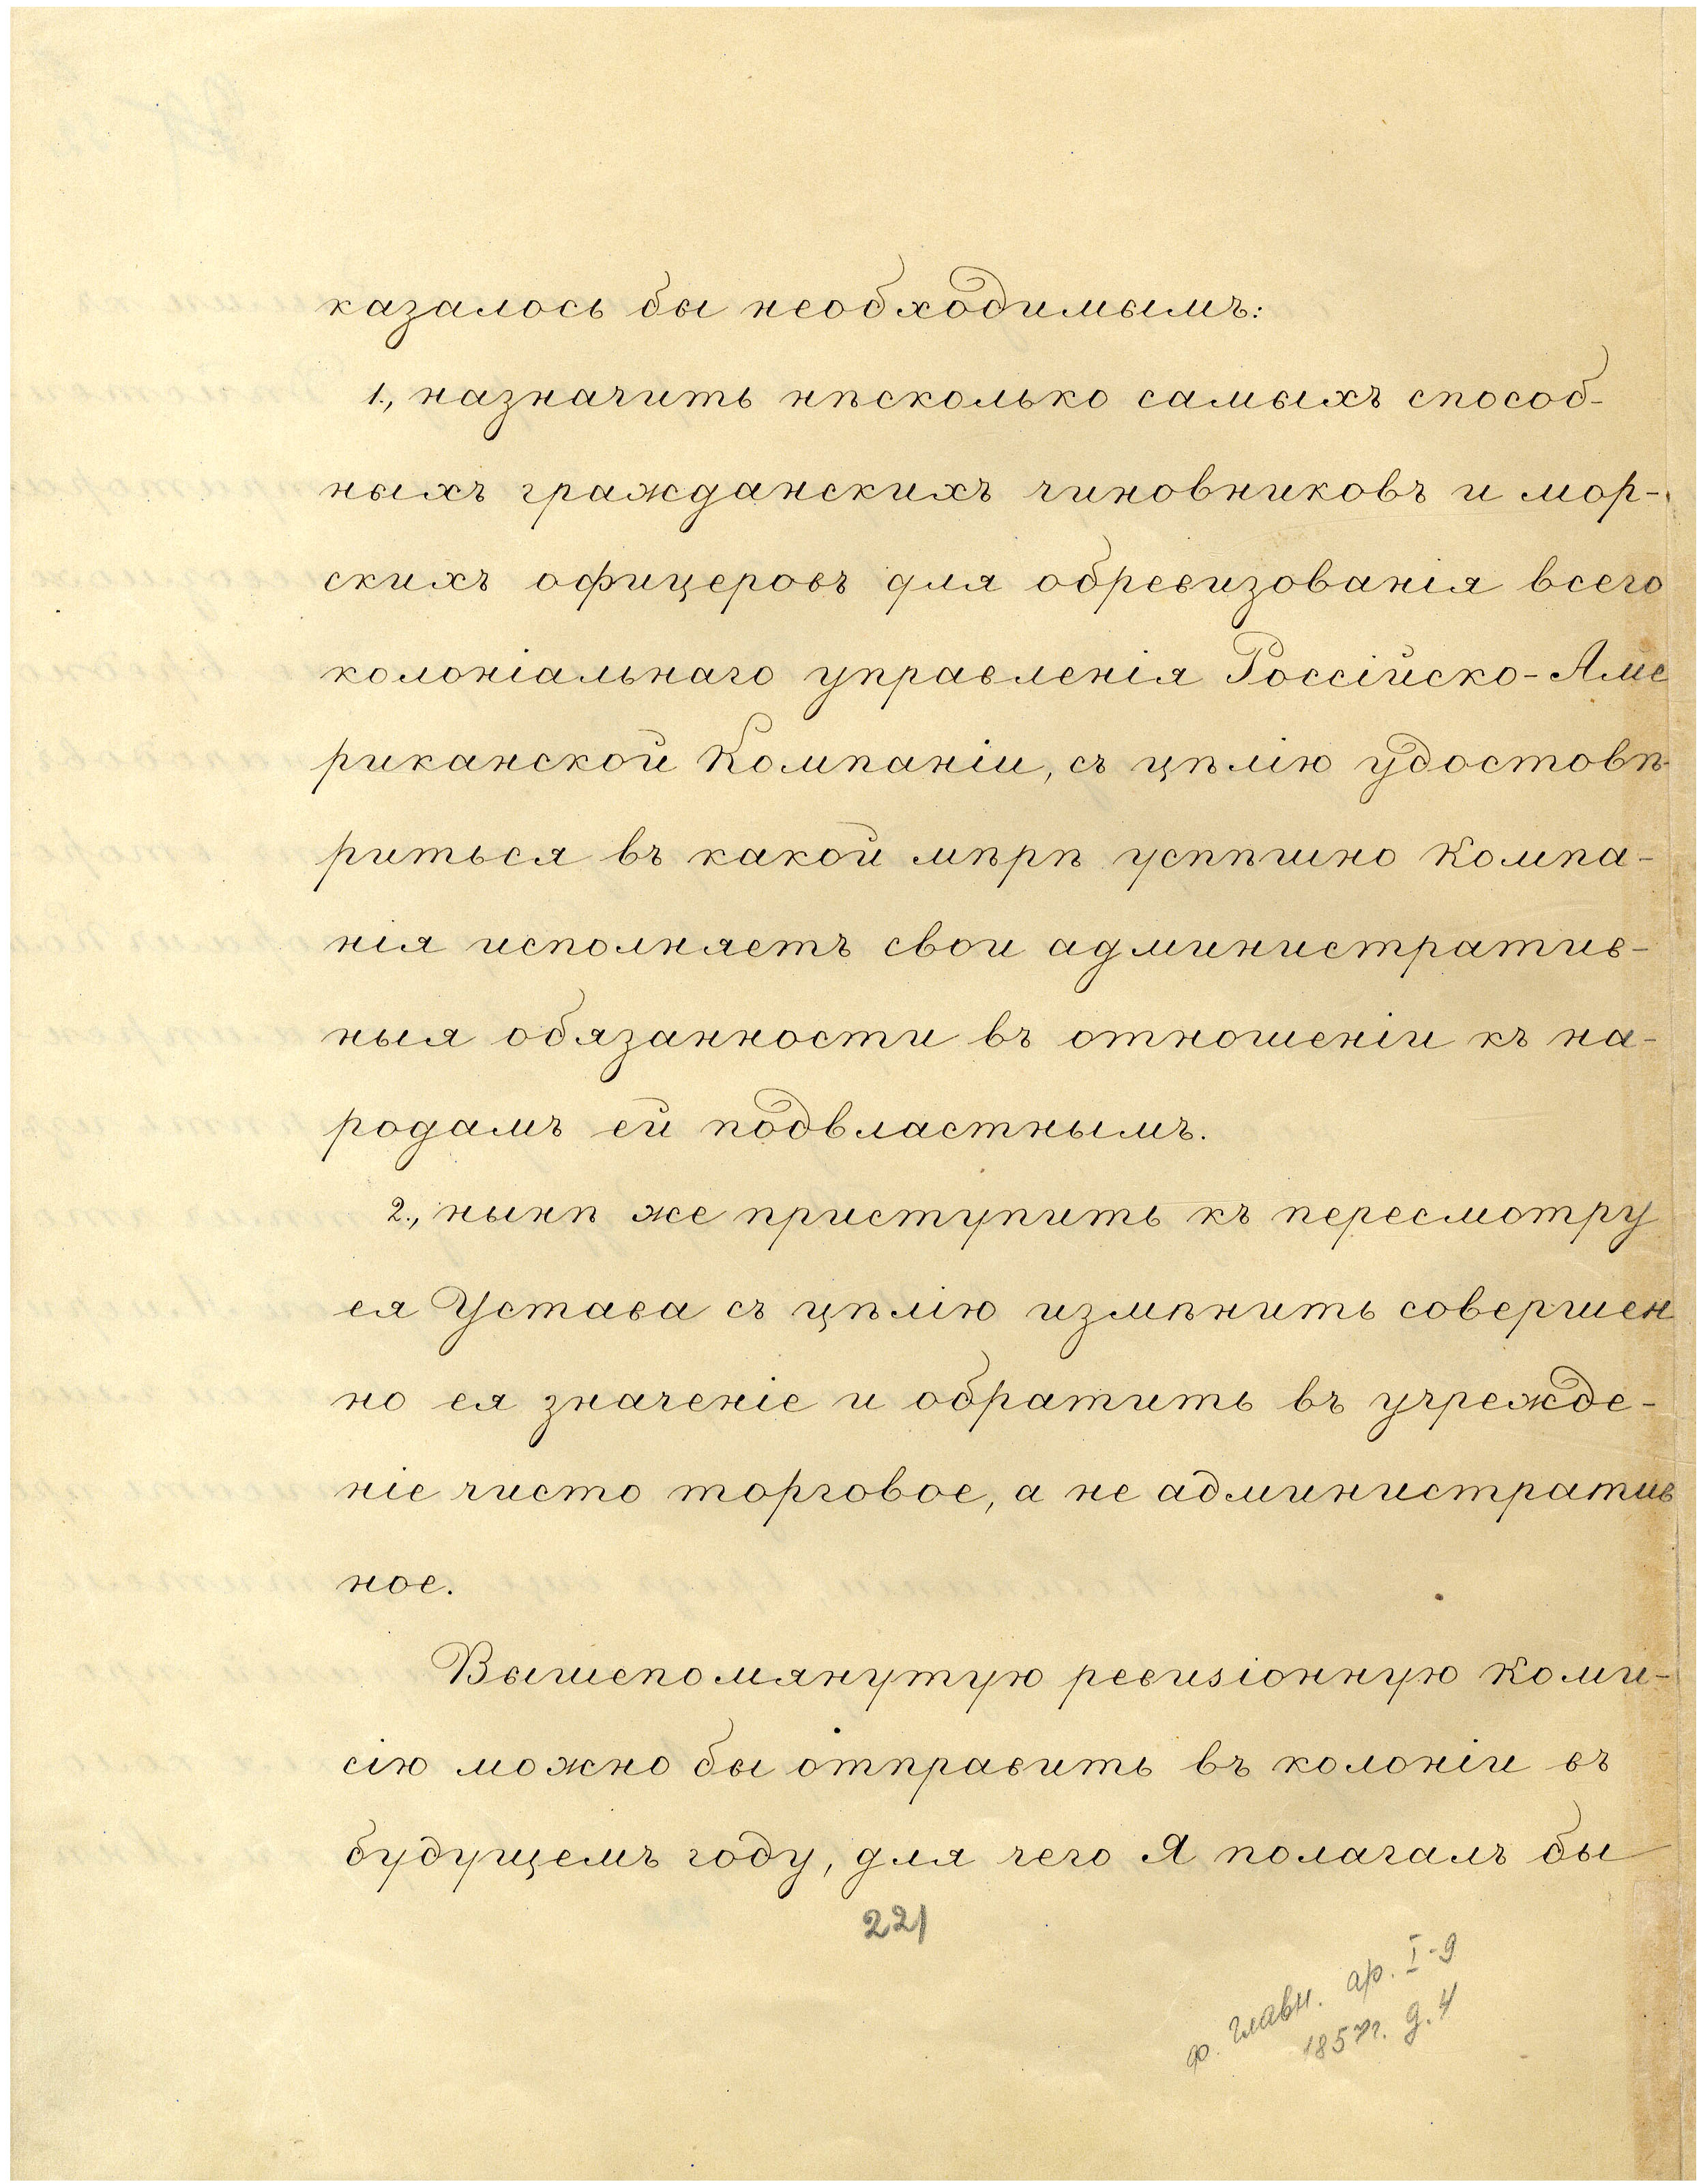 казалось бы необходимымъ:
1., назначить нѣсколько самыхъ способ-
ныхъ гражданскихъ чиновниковъ и мор-
скихъ офицеровъ для обревизованія всего
колоніальнаго управленія Россійско-Аме
риканской Компаніи, съ цѣлію удостовѣ-
риться въ какой мѣрѣ успѣшно Компа-
нія исполняетъ свои административ-
ныя обязанности въ отношеніи къ на-
родамъ ей подвластнымъ.
2., нынѣ же приступить къ пересмотру
ея Устава съ цѣлію измѣнить совершен
но ея значеніе и обратить въ учрежде-
ніе чисто торговое, а не административ
ное.
Вышепомянутую ревизіонную Коми-
сію можно бы отправить въ колоніи въ
будущемъ году, для чего Я полагалъ бы
221
ф. Главн. ар. I-9
1857г. д. 4